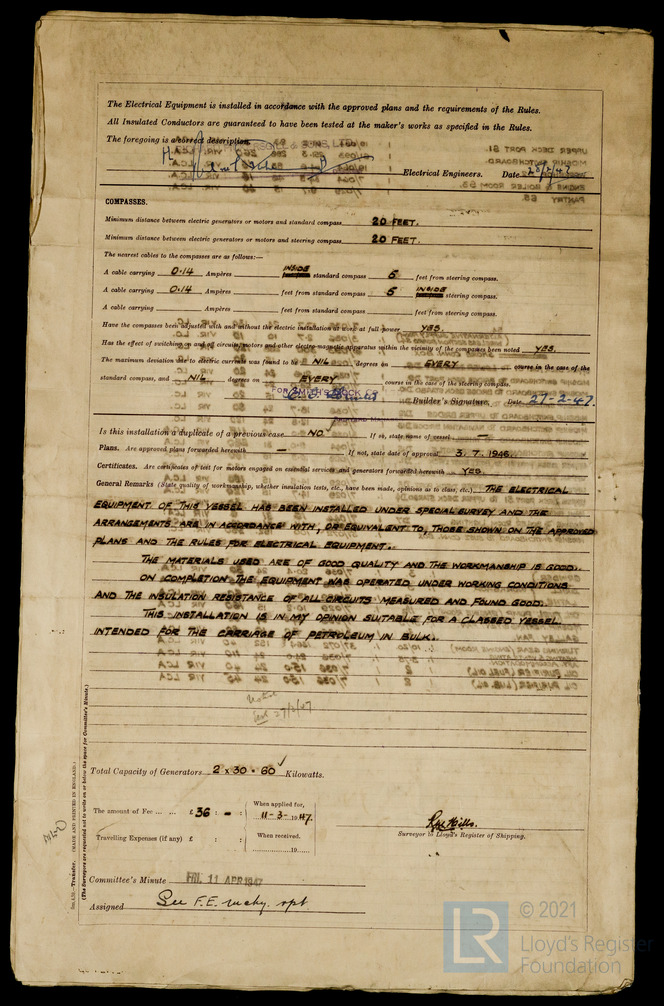 The Electrical Equipment is installed in accordance with the approved plans and the requirements of the Rules.
All Insulated Conductors are guaranteed to have been tested at the maker's works as specified in the Rules.
The foregoing is a correct description.
Electrical Engineers. Date
COMPASSES.
Minimum distance between electric generators or motors and standard compass 20 FEET.
Minimum distance between electric generators or motors and steering compass 20 FEET.
The nearest cables to the compasses are as follows:—
A cable carrying 0.14 Ampères INSIDE standard compass 5 feet from steering compass.
A cable carrying 0.14 Ampères feet from standard compass 5 INSIDE steering compass.
A cable carrying Ampères feet from standard compass feet from steering compass.
Have the compasses been adjusted with and without the electric installation at work at full power YES.
Has the effect of switching on and off circuits, motors and other electro-magnetic apparatus within the vicinity of the compasses been noted YES.
The maximum deviation due to electric currents was found to be NIL degrees on EVERY course in the case of the
standard compass, and NIL degrees on EVERY course in the case of the steering compass.
Builder's Signature. Date 27-2-47.
Is this installation a duplicate of a previous case NO. If so, state name of vessel —
Plans. Are approved plans forwarded herewith — If not, state date of approval 3.7.1946.
Certificates. Are certificates of test for motors engaged on essential services and generators forwarded herewith YES.
General Remarks (State quality of workmanship, whether insulation tests, etc., have been made, opinions as to class, etc.) THE ELECTRICAL
EQUIPMENT OF THIS VESSEL HAS BEEN INSTALLED UNDER SPECIAL SURVEY AND THE
ARRANGEMENTS ARE IN ACCORDANCE WITH, OR EQUIVALENT TO, THOSE SHOWN ON THE APPROVED
PLANS AND THE RULES FOR ELECTRICAL EQUIPMENT.
THE MATERIALS USED ARE OF GOOD QUALITY AND THE WORKMANSHIP IS GOOD.
ON COMPLETION THE EQUIPMENT WAS OPERATED UNDER WORKING CONDITIONS
AND THE INSULATION RESISTANCE OF ALL CIRCUITS MEASURED AND FOUND GOOD.
THIS INSTALLATION IS IN MY OPINION SUITABLE FOR A CLASSED VESSEL
INTENDED FOR THE CARRIAGE OF PETROLEUM IN BULK.
Noted
27/3/47
Total Capacity of Generators 2 x 30 = 60 Kilowatts.
The amount of Fee ... ... £ 36 : - : When applied for, 11-3-1947.
Travelling Expenses (if any) £ : : When received, 19
Surveyor to Lloyd's Register of Shipping.
Committee's Minute FRI. 11 APR 1947
Assigned See F.E. mchy. rpt
(MADE AND PRINTED IN ENGLAND.)
(The Surveyors are requested not to write on or below the space for Committee's Minute.)
LR
© 2021
Lloyd's Register
Foundation